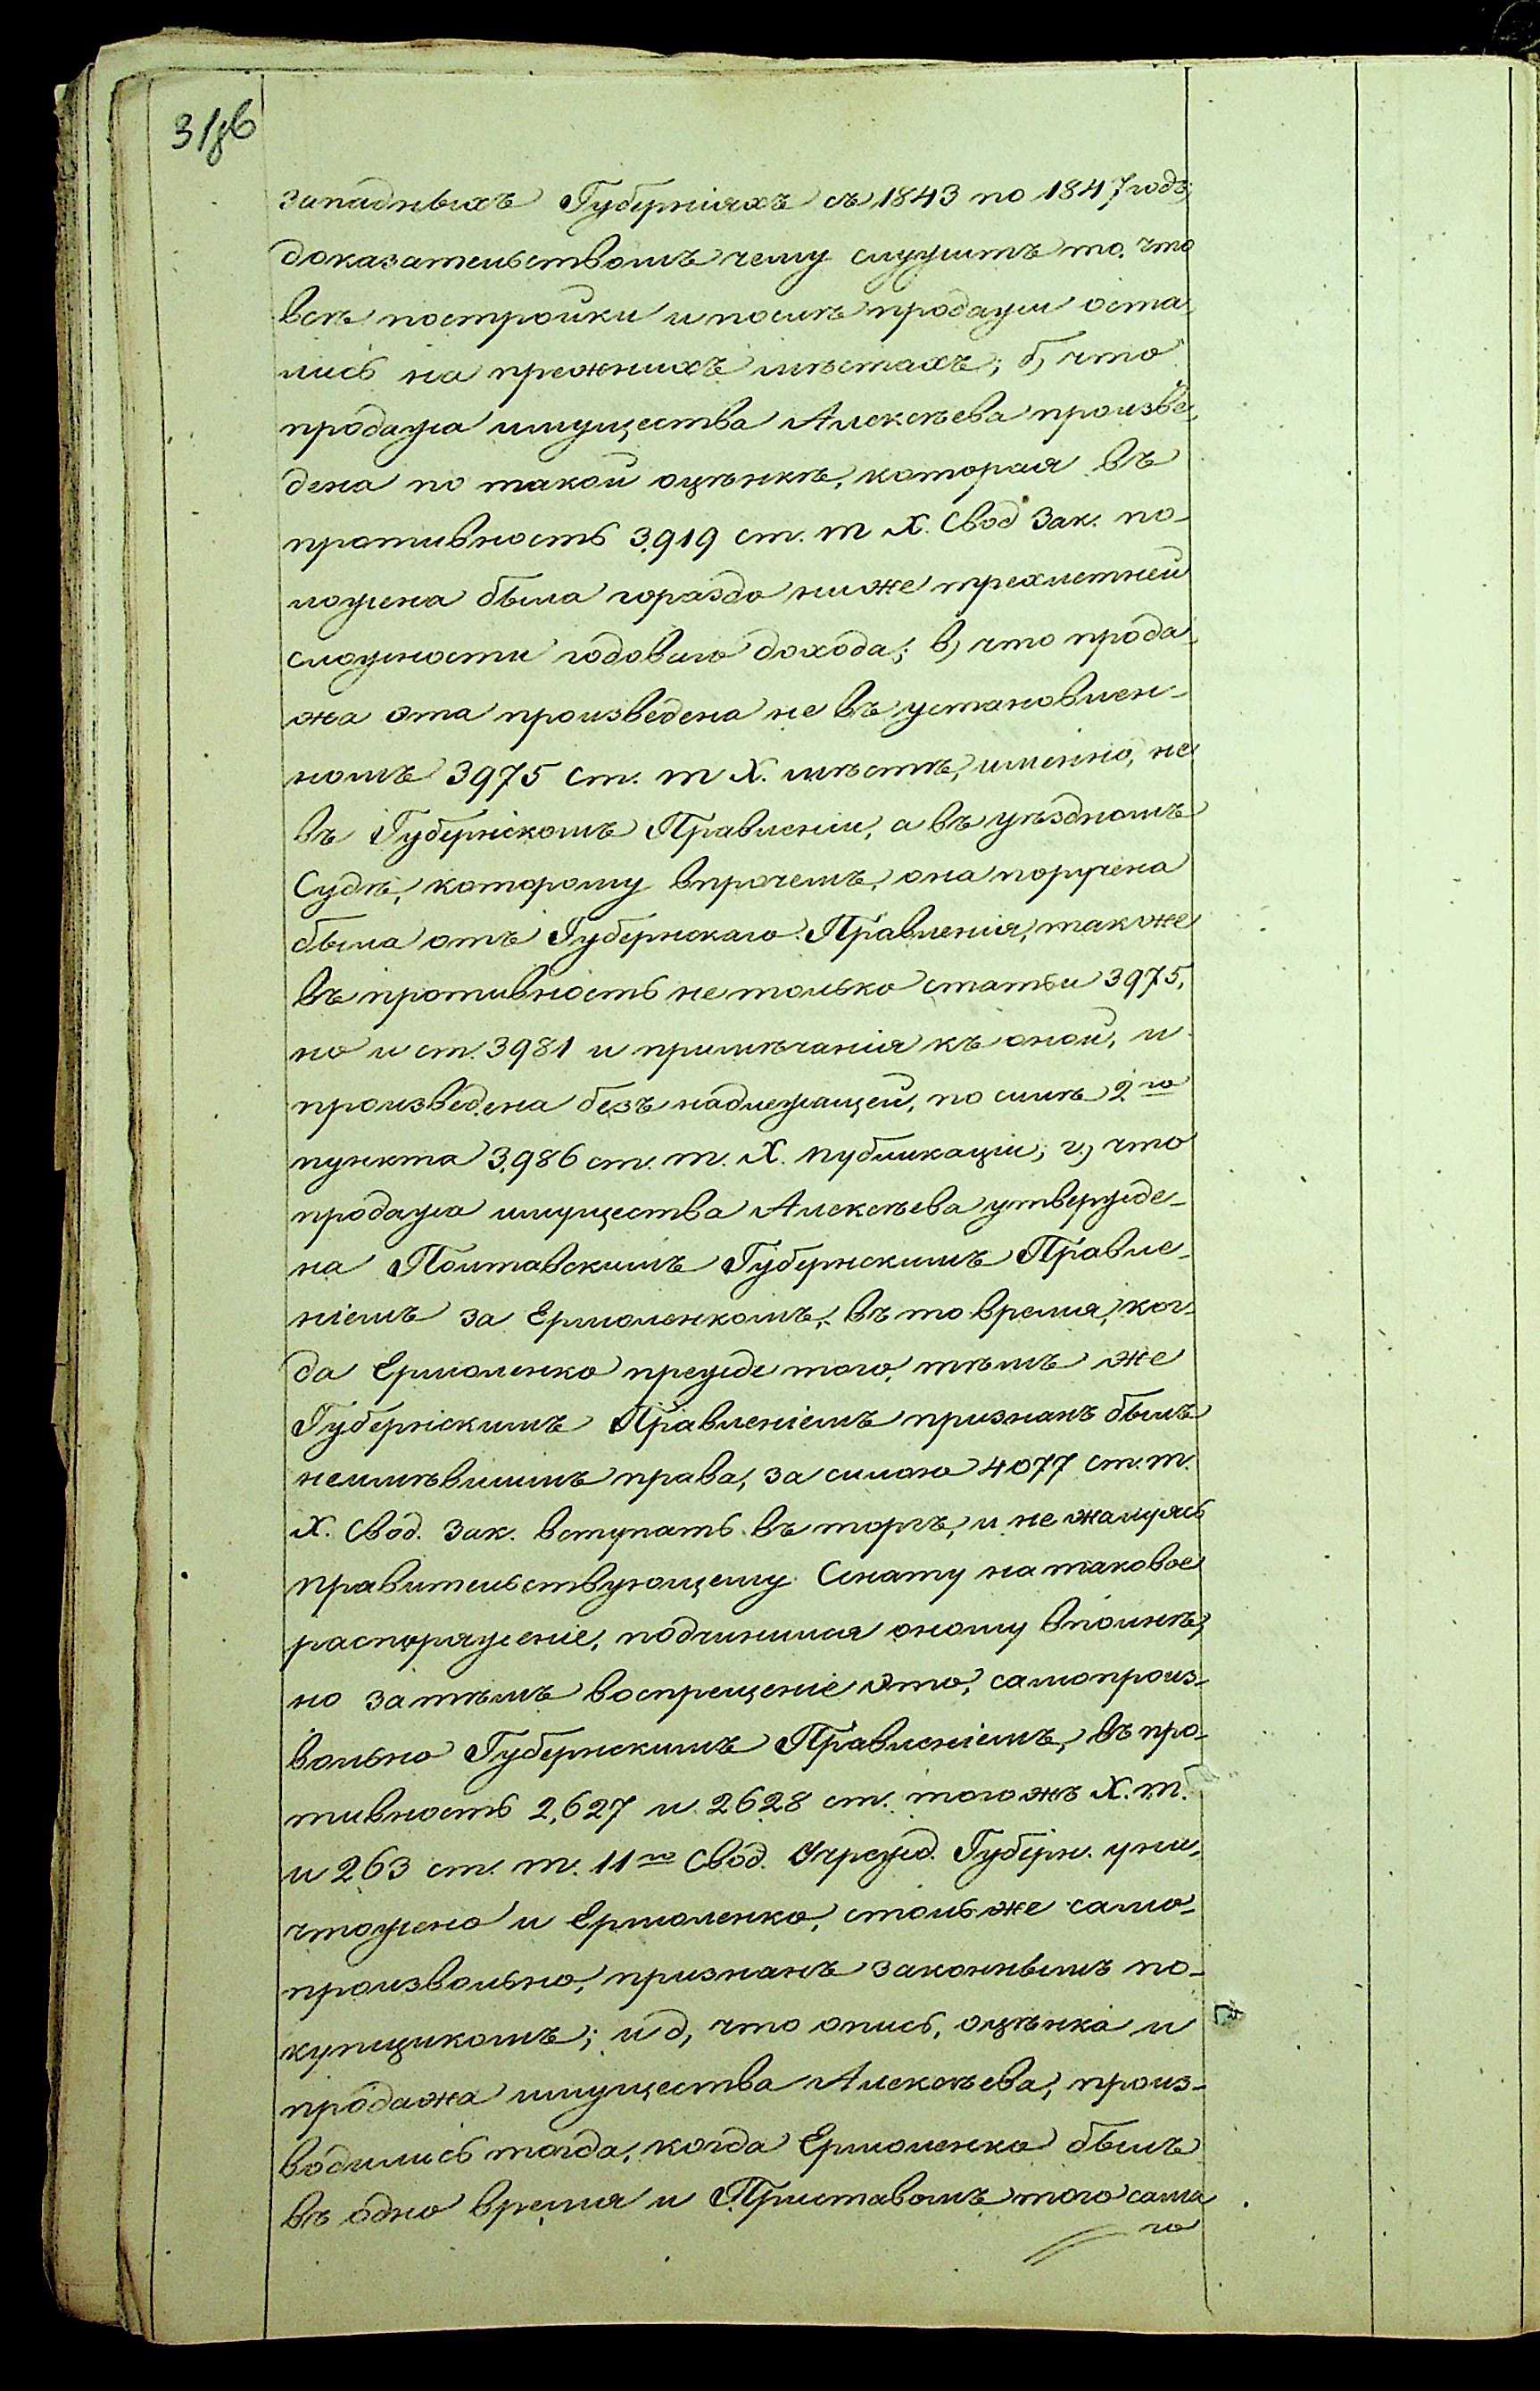 318б
западныхъ Губерніяхъ съ 1843 по 1847 годъ,
доказательствомъ чему служитъ то, что
всѣ постройки и послѣ продажи оста-
лись на прежнихъ мѣстахъ; б, что
продажа имущества Алексѣева произве-
дена по такой оцѣнкѣ, которая въ
противность 3,919 ст. т X. Свод Зак. по-
ложена была гораздо ниже трехлетней
сложности годоваго дохода; в, что прода-
жа эта произведена не въ установлен-
номъ 3975 ст. т X. мѣстѣ, именно, не
въ Губернскомъ Правленіи, а въ уѣздномъ
Судѣ, которому впрочемъ, она поручена
была отъ Губернскаго Правленія, также
въ противность не только статьи 3975,
но и ст. 3981 и примѣчанія къ оной, и
произведена безъ надлежащей, по силѣ 2го
пункта 3,986 ст. т. X. публикаціи; г, что
продажа имущества Алексѣева утвержде-
на Полтавскимъ Губернскимъ Правле-
ніемъ за Ермоленкомъ, въ то время, ког-
да Ермоленко прежде того, тѣмъ же
Губернскимъ Правленіемъ признанъ былъ
неимѣвшимъ права, за силою 4077 ст. т.
X. Свод. Зак. вступать въ торгъ, и не жалуясь
правительствующему Сенату на таковое
распоряженіе, подчинился оному вполнѣ,
но за тѣмъ воспрещеніе это, самопроиз-
вольно Губернскимъ Правленіемъ, въ про-
тивность 2,627 и 2628 ст. того жъ X. т.
и 263 ст. т. 11го Свод. Учрежд. Губерн. уни-
чтожено и Ермоленко, столь же само-
произвольно, признанъ законнымъ по-
купщикомъ; и д, что опись, оцѣнка и
продажа имущества Алексѣева, произ-
водились тогда, когда Ермоленко былъ
въ одно время и Приставомъ того сама
го